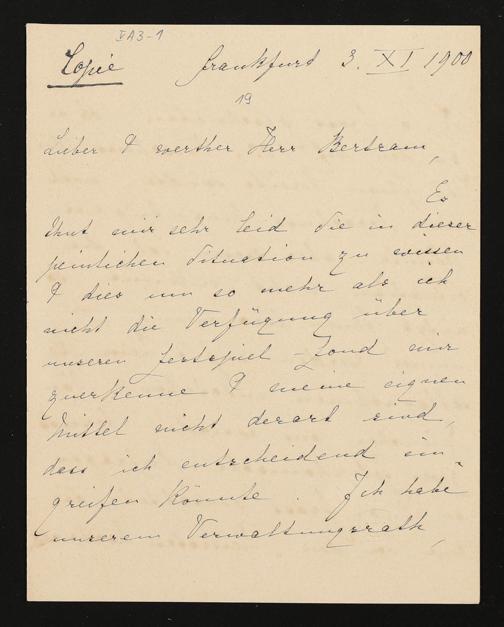 V A3-1
Copie Frankfurt 3. XI 1900
19
Lieber & werther Herr Bertram,
Es
thut mir sehr leid Sie in dieser
peinlichen Situation zu wissen
& dies um so mehr als ich
nicht die Verfügung über
unseren Festspiel-Fond mir
zuerkenne & meine eignen
Mittel nicht derart sind,
dass ich entscheidend ein-
greifen könnte. Ich habe
unserem Verwaltungsrath,